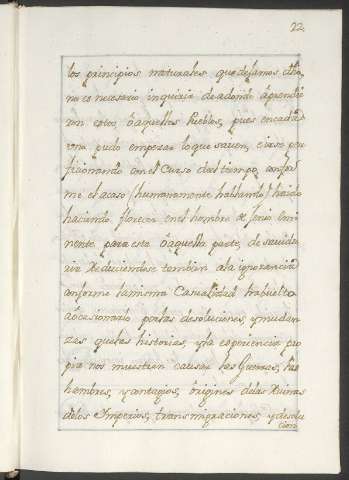 22.
los principios naturales, que dejamos dho,
no es necesario inquirir de adonde aprendie
ron estos, ó aquellos Pueblos, pues en cada
uno pudo empezar lo que saven, e irse per
ficionando con el Curso del tiempo, confor
me el acaso (humanamente hablando) ha ido
haciendo florecer en el hombre de genio emi
nente para esta ó aquella parte, de savidu
ria Reduciendose tambien a la ignorancia
conforme la misma Casualidad ha buelto
a occasionarlo por las desoluciones, y mudan
zas que las historias, y la experiencia pro
pia nos muestran causar las Guerras, ha
hombres, y contagios, origines de las Ruinas
de los Imperios, transmigraciones, y desolu
cion